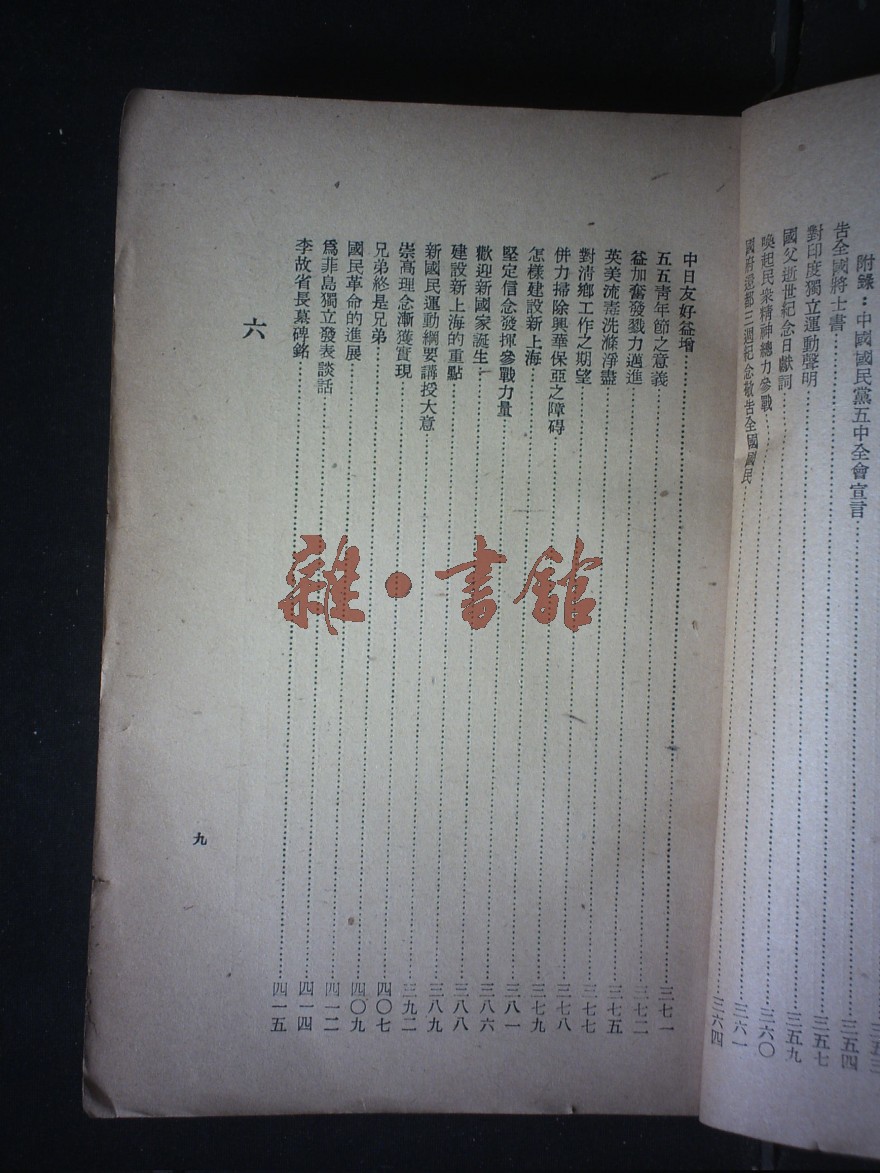 三五三
附錄：中國國民黨五中全會宣言……三五四
告全國將士書……三五七
對印度獨立運動聲明……三五九
國父逝世紀念日獻詞……三六〇
喚起民衆精神總力參戰……三六一
國府還都三週紀念敬告全國國民……三六四
中日友好益增……三七一
五五靑年節之意義……三七二
益加奮發戮力邁進……三七五
英美流毒洗滌淨盡……三七七
對淸鄉工作之期望……三七八
併力掃除興華保亞之障碍……三七九
怎樣建設新上海……三八一
堅定信念發揮參戰力量……三八六
歡迎新國家誕生……三八八
建設新上海的重點……三八九
新國民運動綱要講授大意……三九二
崇高理念漸獲實現……四〇七
兄弟終是兄弟……四〇九
國民革命的進展……四一二
爲非島獨立發表談話……四一四
李故省長墓碑銘……四一五
六
九
雜·書館